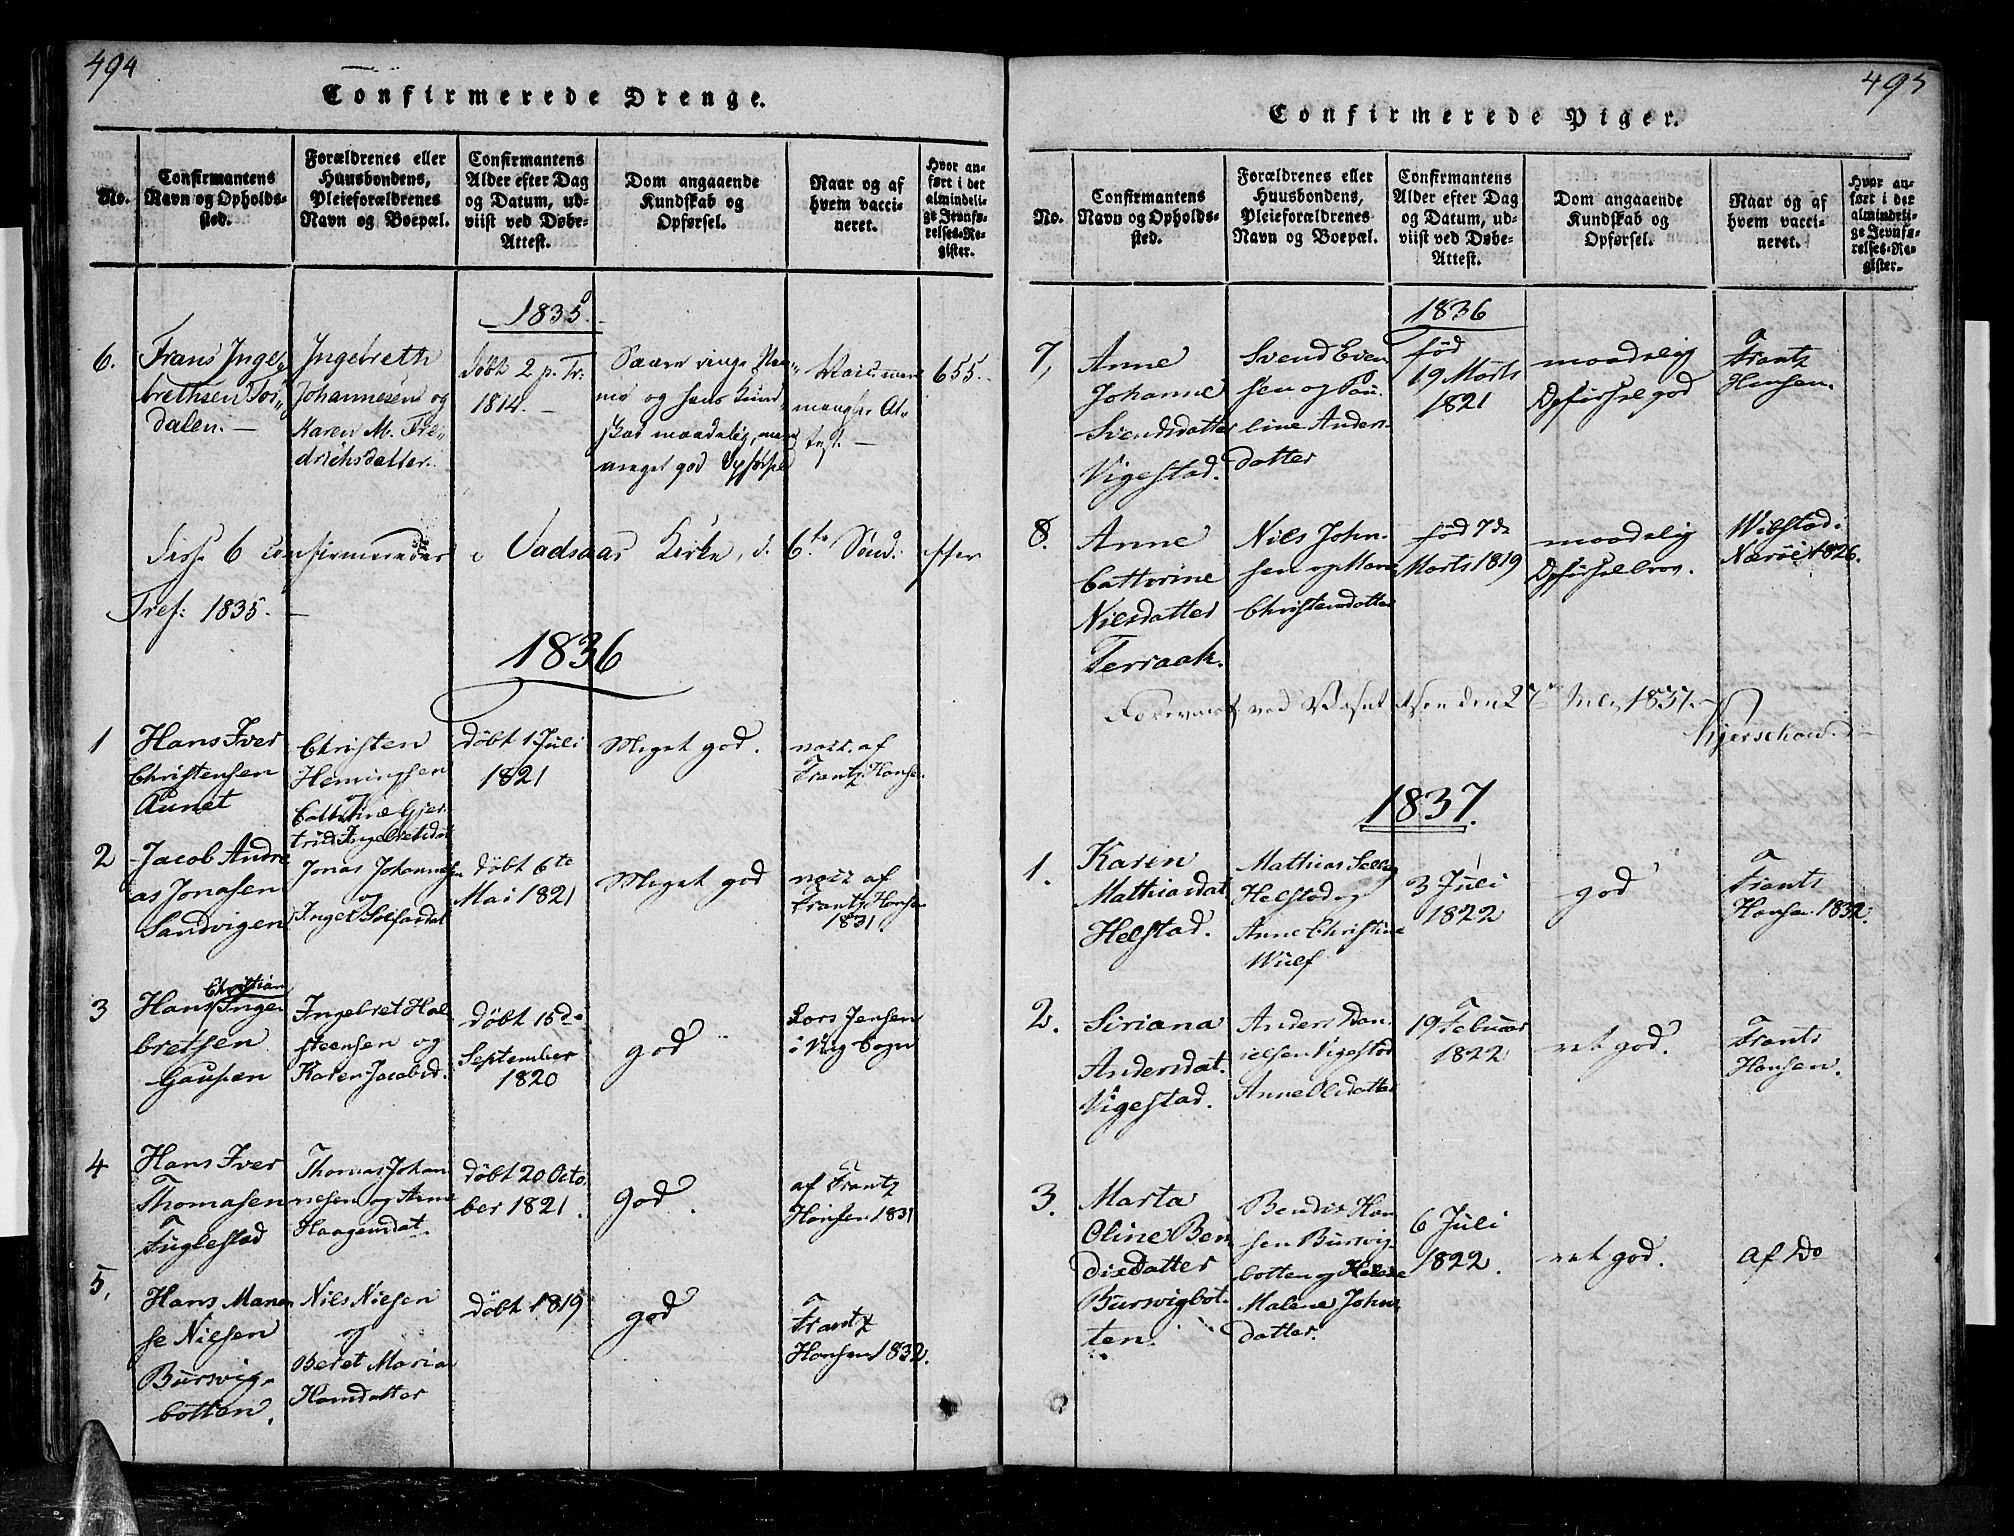 494
Confirmerede Drenge.
No.
Confirmantens
Navn og Opholds-
sted.
Forældrenes eller
Huusbondens,
Pleieforældrenes
Navn og Boepæl.
Confirmantens
Alder efter Dag
og Datum, ud-
viist ved Døbe-
Attest.
Dom angaaende
Kundskab og
Opførsel.
Naar og af
hvem vacci-
neret.
Hvor an-
ført i det
almindeli-
ge Jevnfø-
relses-Re-
gister.
1835.
6.
Frans Inge-
brethsen Tos-
dalen.
Ingebreth
Johannesen og
Karen M. Fre-
drichsdatter.
Døbt 2 p. Tr:
1814.
mo og hans Kund-
skab maadelig, men
meget god Opførsel
655.
Disse 6 confirmerede i Vadsaas Kirke, d. 6te Sønd: efter
Tref: 1835.
1836
1
Hans Iver
Christensen
Aunet
Christen
Hemingsen
og
Cathrine Gjer-
trud Ingebretsdat
døbt 1 Juli
1821
Meget god.
vacc. af
Frantz Hanse
2
Jacob Andre
as Jonasen
Sandvigen
Jonas Johannesen
og
Ingel
døbt 6te
Mai 1821
Meget god
vacc af
Frantz Hansen
1831
3
Christian
Hans Inge
bretsen
Gaupen
Ingebret Hal
steensen og
Karen Jacobsd.
døbt 15de
September
1820
god
Lars Jensen
i Vig Sogn
4
Hans Iver
Thomasen
Fuglestad
Thomas Johan
nesen og Anne
Haagensdat.
døbt 20 Octo
ber 1821.
god.
af Frantz
Hansen 1831
5,
Hans Mana
se Nielsen
Bursvig-
botten.
Nils Nielsen
og
Beret Maria
Hansdatter
døbt 1819
god
Frantz
Hansen 1832.
495
Confirmerede Piger.
No.
Confirmantens
Navn og Opholds-
sted.
Forældrenes eller
Huusbondens,
Pleieforældrenes
Navn og Boepæl.
Confirmantens
Alder efter Dag
og Datum, ud-
viist ved Døbe-
Attest.
Dom angaaende
Kundskab og
Opførsel.
Naar og af
hvem vacci-
neret.
Hvor an-
ført i det
almindeli-
ge Jevnfø-
relses-Re-
gister.
1836
7,
Anne
Johanne
Svendsdatter
Vigestad.
Svend Even
sen og Pau-
line Anders-
datter
fød
19 Marts
1821
maadelig
Opførsel god
Frantz
Hansen.
8.
Anne
Cathrine
Nilsdatter
Terraak.
Nils John-
sen og Maren
Christensdatter
fød 7de
Marts 1819
maadelig
Opførsel brav.
Wibstad i
Nærøe 1826.
Foreviist ved Visitatsen den 27de July 1837.
1837.
1.
Karen
Mathiasdat
Helstad.
Mathias
Helstad og
Anne Christine
Wulf
3 Juli
1822
god
Frants
Hansen 1832.
2.
Siriana
Andersdat.
Vigestad.
Anders Dan-
ielsen Vigestad
Anne Olsdatter
19 Februar
1822
ret god.
Frants
Hansen.
3.
Marta
Oline Ben
dixdatter
Bursvigbot-
ten.
Bendix Han
sen Bursvig-
botten og
Malene Johns
datter.
6 Juli
1822.
ret god.
af Do